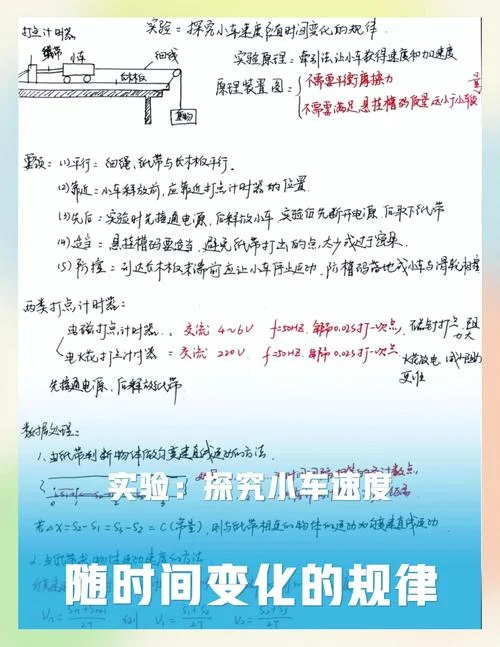 实验:探究小车速度随时间变化的规律
打点计时器
纸带 小车 细线
长木板
重物
实验原理:牵引法让小车获得速度和加速度
原理装置图:
不需要平衡摩擦力
不需要满足悬挂槽码质量远小于小车质量
要领:(1)平行:细绳、纸带与长木板平行.
(2)靠近:小车释放前,应靠近打点计时器的位置.
(3)先后:实验时先接通电源,后释放小车 实验后先断开电源 后取下纸带
(4)适当:悬挂槽码要适当,避免纸带打出的点太少或过于密集.
(5)防撞:到达长木板末端前应让小车停止运动,防槽码落地或小车与滑轮相撞
两类打点计时器:
电磁打点计时器. 交流 4~6V f=50HZ. 每隔0.02s打一次点, 阻力大
电火花打点计时器: 交流 220V. f=50HZ 每隔0.02s打一次点 火花放电,
更准
先接通电源,后释放纸带
数据处理:
1.由纸带判断物体做匀变速直线运动的方法.
实验:探究小车速度
0 1 2 3
若△X=S2-S1=S3-S2=C(常量),则与纸带相连的物体的运动为匀变速直线运动.
随时间变化的规律